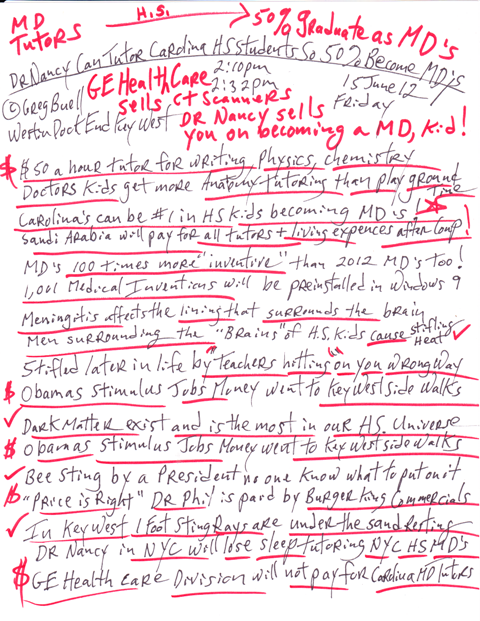 MD TUTORS
H.S.
50% graduate as MD's
Dr Nancy Can Tutor Carolina HS Students So 50% Become MD's
© Greg Buell
GE HealthCare
2:10pm
2:32pm
15 June 12
Friday
sells CT scanners
Western Dock End Key West
DR Nancy sells
you on becoming a MD, Kid!
$ $50 a hour tutor for writing, Physics, chemistry
Doctors Kids get more Anatomy tutoring than play ground Time
Carolina's can be #1 in HS Kids becoming MD's!
Saudi Arabia will pay for all tutors + living expences after coup!
MD's 100 times more "inventive" than 2012 MD's Too!
1,001 Medical Inventions will be preinstalled in Windows 9
Meningitis affects the lining that surrounds the brain
Men surrounding the "Brains" of H.S. Kids cause stifling Heat ✓
Stifled later in life by "Teachers hitting" on you wrong way
$ Obamas Stimulus Jobs Money went to Key West side walks
✓ Dark Matter exist and is the most in our H.S. Universe
$ Obamas Stimulus Jobs Money went to Key West side walks
✓ Bee Sting by a President no one know what to put on it
$ "Price is Right" DR Phil is paid by Burger King Commercials
✓ In Key West 1 foot Sting Rays are under the sand Resting
DR Nancy in NYC will lose sleep tutoring NYC HS MD's
$ GE Health care Division will not pay for Carolina MD Tutors